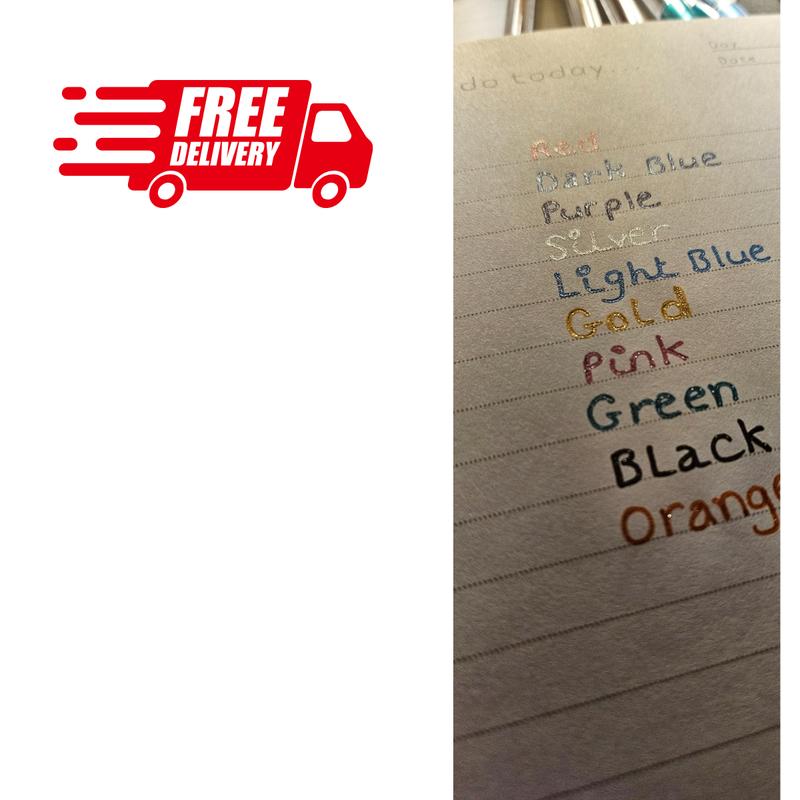 FREE
DELIVERY
do today...
Day
Date
Red
Dark Blue
Purple
Silver
Light Blue
Gold
Pink
Green
BLack
Orange